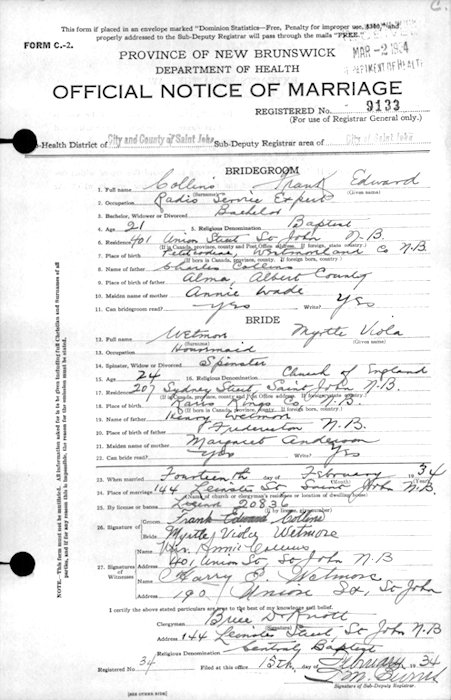 This form if placed in an envelope marked "Dominion Statistics—Free, Penalty for improper use, $300," and
properly addressed to the Sub-Deputy Registrar will pass through the mails "FREE."
FORM C.-2.
MAR -2 1934
DEPARTMENT OF HEALTH
PROVINCE OF NEW BRUNSWICK
DEPARTMENT OF HEALTH
OFFICIAL NOTICE OF MARRIAGE
REGISTERED No. 9133
(For use of Registrar General only.)
Sub-Health District of City and County of Saint John Sub-Deputy Registrar area of City of Saint John
BRIDEGROOM
1. Full name Collins Frank Edward
(Surname) (Given name)
2. Occupation Radio Service Expert
3. Bachelor, Widower or Divorced Bachelor
4. Age 21 5. Religious Denomination Baptist
6. Residence 401 Union Street St John N.B.
(If in Canada, province, county and Post Office address. If foreign, state country.)
7. Place of birth Petitcodiac, Westmorland Co N.B.
(If born in Canada, province, county. If foreign born, country.)
8. Name of father Charles Collins
9. Place of birth of father Alma Albert County
10. Maiden name of mother Annie Wade
11. Can bridegroom read? Yes Write? Yes
BRIDE
12. Full name Wetmore Myrtle Viola
(Surname) (Given name)
13. Occupation Housemaid
14. Spinster, Widow or Divorced Spinster
15. Age 24 16. Religious Denomination Church of England
17. Residence 207 Sydney Street Saint John N.B.
(If in Canada, province, county and Post Office address. If foreign, state country.)
18. Place of birth Kings Co N.B.
(If born in Canada, province, county. If foreign born, country.)
19. Name of father Henry Wetmore
20. Place of birth of father Fredericton N.B.
21. Maiden name of mother Margaret Anderson
22. Can bride read? Yes Write? Yes
23. When married Fourteenth day of February 1934
(Month) (Year)
24. Place of marriage 144 Leinster St Saint John N.B.
(Name of church or clergyman's residence or location of dwelling house)
25. By license or banns License 20836
(If by license, give number)
26. Signature of
Groom Frank Edward Collins
Bride Myrtle Viola Wetmore
27. Signature of Witnesses
Mrs. Annie Collins
Address 401 Union St, St John N.B
Harry Wetmore
Address 190 Union St, St John
I certify the above stated particulars are true to the best of my knowledge and belief.
Clergyman Bruce D Knott
(Signature)
Address 144 Leinster Street St John N.B
Religious Denomination Central Baptist
Registered No. 34 Filed at this office 15th day of February 1934
Burns
Signature of Sub-Deputy Registrar.
(SEE OTHER SIDE)
NOTE. This form must not be mutilated. All information asked for is to be given including full Christian and Surnames of all
parties, and if for any reason this is impossible, the reason for the omission must be stated.